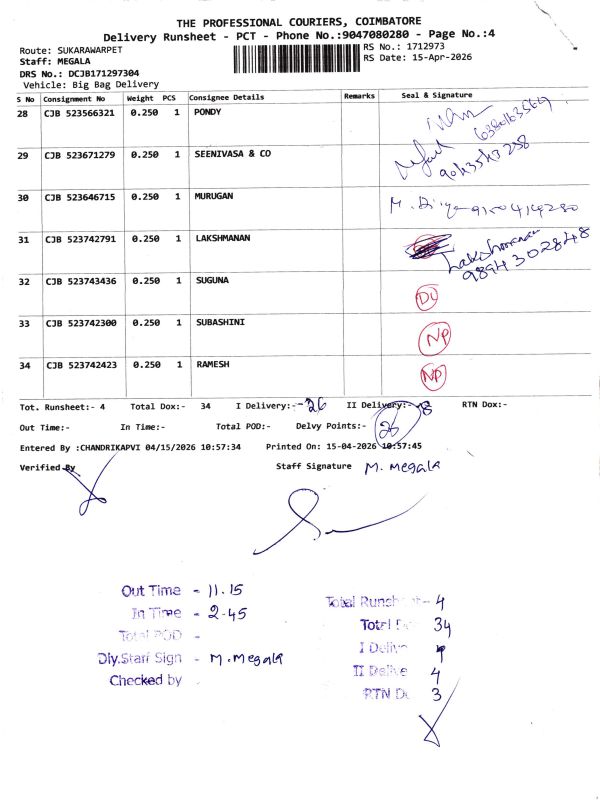 THE PROFESSIONAL COURIERS, COIMBATORE
Delivery Runsheet - PCT - Phone No.:9047080280 - Page No.:4
Route: SUKARAWARPET
RS No.: 1712973
Staff: MEGALA
RS Date: 15-Apr-2026
DRS No.: DCJB171297304
Vehicle: Big Bag Delivery
S No Consignment No Weight PCS Consignee Details Remarks Seal & Signature
28 CJB 523566321 0.250 1 PONDY
29 CJB 523671279 0.250 1 SEENIVASA & CO
30 CJB 523646715 0.250 1 MURUGAN
31 CJB 523742791 0.250 1 LAKSHMANAN Lakshmanan
9894302848
32 CJB 523743436 0.250 1 SUGUNA
33 CJB 523742300 0.250 1 SUBASHINI NP
34 CJB 523742423 0.250 1 RAMESH NP
Tot. Runsheet:- 4 Total Dox:- 34 I Delivery:- 26 II Delivery:- 8 RTN Dox:-
Out Time:- In Time:- Total POD:- Delvy Points:- 26
Entered By :CHANDRIKAPVI 04/15/2026 10:57:34 Printed On: 15-04-2026 10:57:45
Verified By Staff Signature M. Megala
Out Time - 11.15
In Time - 2-45
Total POD -
Dly.Starf Sign - M.Megala
Checked by
Total Runsh - 4
Total D 34
I Delive
II Delive 4
RTN D 3